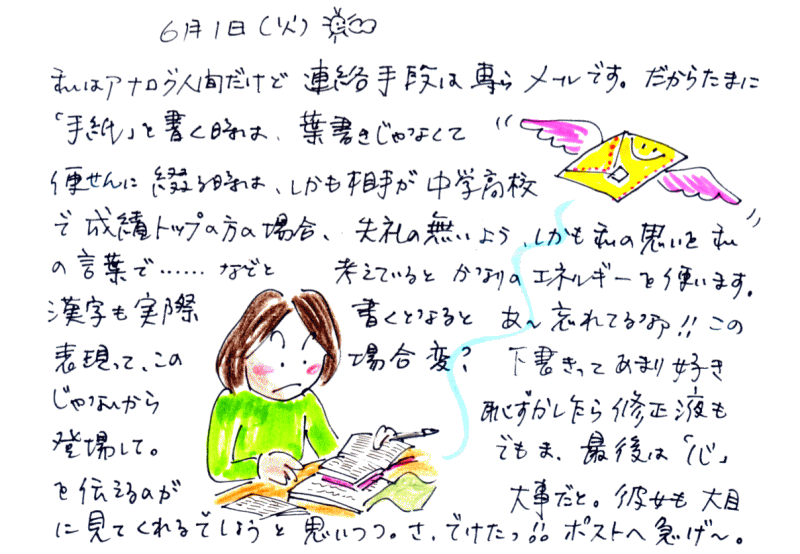 6月1日(火)
私はアナログ人間だけど 連絡手段は専らメールです。だからたまに
「手紙」を書く時は、葉書きじゃなくて
便せんに綴る時は、しかも相手が中学高校
で成績トップの方の場合、失礼の無いよう、しかも私の思いを私
の言葉で……などと 考えていると かなりのエネルギーを使います。
漢字も実際 書くとなると あ〜忘れてるなァ!!この
表現って、この 場合変? 下書きってあまり好き
じゃないから 恥ずかしながら修正液も
登場して。 でもま、最後は「心」
を伝えるのが 大事だと。彼女も大目
に見てくれるでしょうと思いつつ。さ、でけたっ!! ポストへ急げ〜。